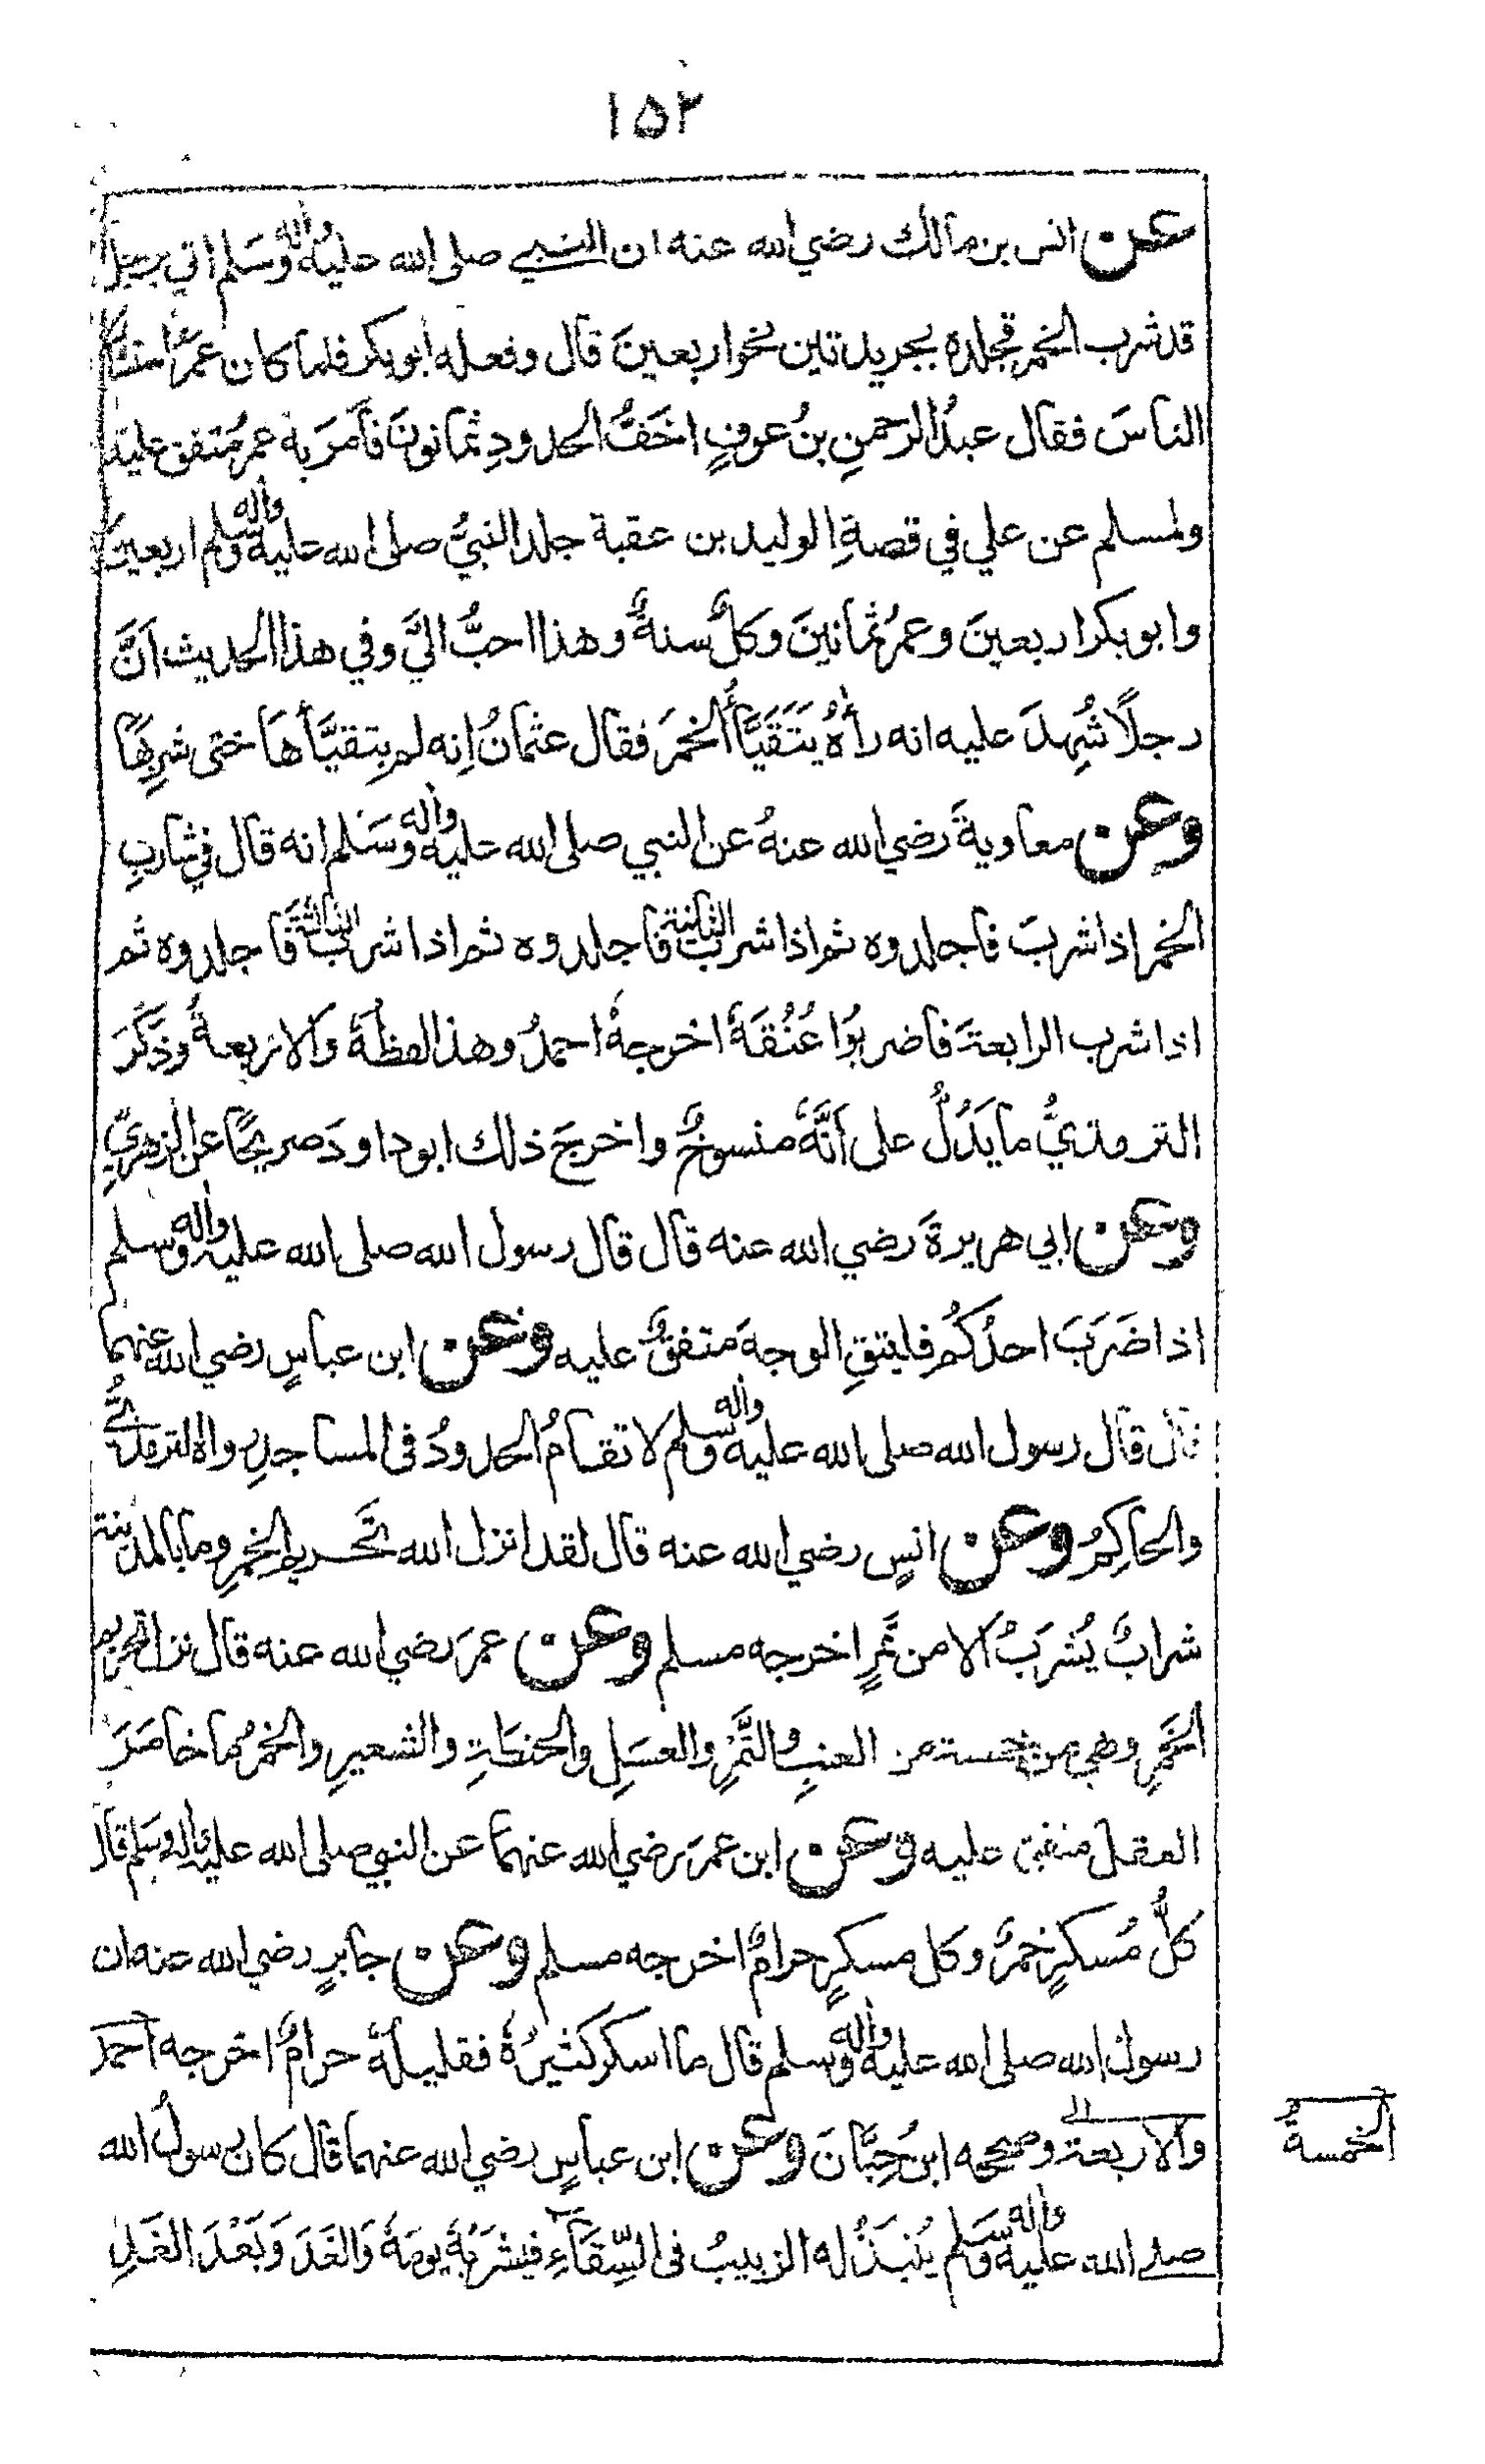 ١٥٢
عن انس بن مالك رضي الله عنه ان النبي صلى الله عليه واٰله وسَلم اتي برجل
قد شرب الخمر فجلده بجريدتين نحوا ربعينَ قال وفعله ابو بكر فلما كان عمرُ استشار
الناسَ فقال عبدُ الرحمنِ بنُ عوفٍ اخَفُّ الحدودِ ثمانونَ فأمَرَ به عمرُ متفق عليه
ولمسلم عن علي في قصةِ الوليد بن عقبة جلد النبيُّ صلى الله عليه واٰله وسلم اربعين
وابو بكر اربعينَ وعمرُ ثمانينَ وكلٌ سنةٌ وهذا احبُّ اليَّ وفي هذا الحديث اَنَّ
رجلًا شُهِدَ عليه انه رأٰهُ يَتَقَيَّأُ الخمرَ فقال عثمانُ اِنه لم يتقيَّأها حتى شرِبَها
وعن معاويةَ رضي الله عنهُ عن النبي صلى الله عليه واٰله وسَلم انه قال في شاربِ
الخمر اذا شربَ فاجلدوه ثم اذا شرب الثانية فاجلدوه ثم اذا شرب الثالثةَ فاجلدوه ثم
اذا شرب الرابعةَ فاضربوا عُنُقَهٗ اخرجهٗ احمدُ وهذا لفظهٗ والاربعةُ وذَكَرَ
الترمذيُّ ما يَدُلُّ على اَنَّهٗ منسوخٌ واخرجَ ذلك ابو داودَ صريحًا عن الزهريِّ
وعن ابي هريرةَ رضي الله عنه قال قال رسول الله صلى الله عليه واٰله وسلم
اذا ضَرَبَ احدُكُم فليتقِ الوجهَ متفقٌ عليه وعن ابن عباسٍ رضي الله عنهما
قال قال رسول الله صلى الله عليه واٰله وسلم لا تقامُ الحدودُ في المساجدِ رواه الترمذيُّ
والحاكِمُ وعن انسٍ رضي الله عنه قال لقد انزل الله تَحريم الخمرِ وما بالمدينة
شرابٌ يُشرَبُ الا من تمرٍ اخرجه مسلم وعن عمرَ رضي الله عنه قال نزل تحريم
الخَمرِ وهي من خمسة من العنبِ والتَّمرِ والعسَلِ والحنطةِ والشعيرِ والخمرُ ما خامَرَ
العقلَ متفق عليه وعن ابن عمرَ رضي الله عنهما عن النبي صلى الله عليه واٰله وسلم قال
كلُّ مُسكرٍ خمرٌ وكل مسكرٍ حرامٌ اخرجه مسلم وعن جابرٍ رضي الله عنه ان
رسول الله صلى الله عليه واٰله وسلم قال ما اسكر كثيرُهٗ فقليلُهٗ حرامٌ اخرجه احمد
والاربعة وصححه ابن حِبَّانَ وعن ابن عباسٍ رضي الله عنهما قال كان رسولُ الله
الخمسةُ
صلى الله عليه واٰله وسَلم يُنبَذُ له الزبيبُ في السِّقَآءِ فيشرَبُهٗ يومَهٗ وَالغَدَ وَبَعْدَ الغَدِ